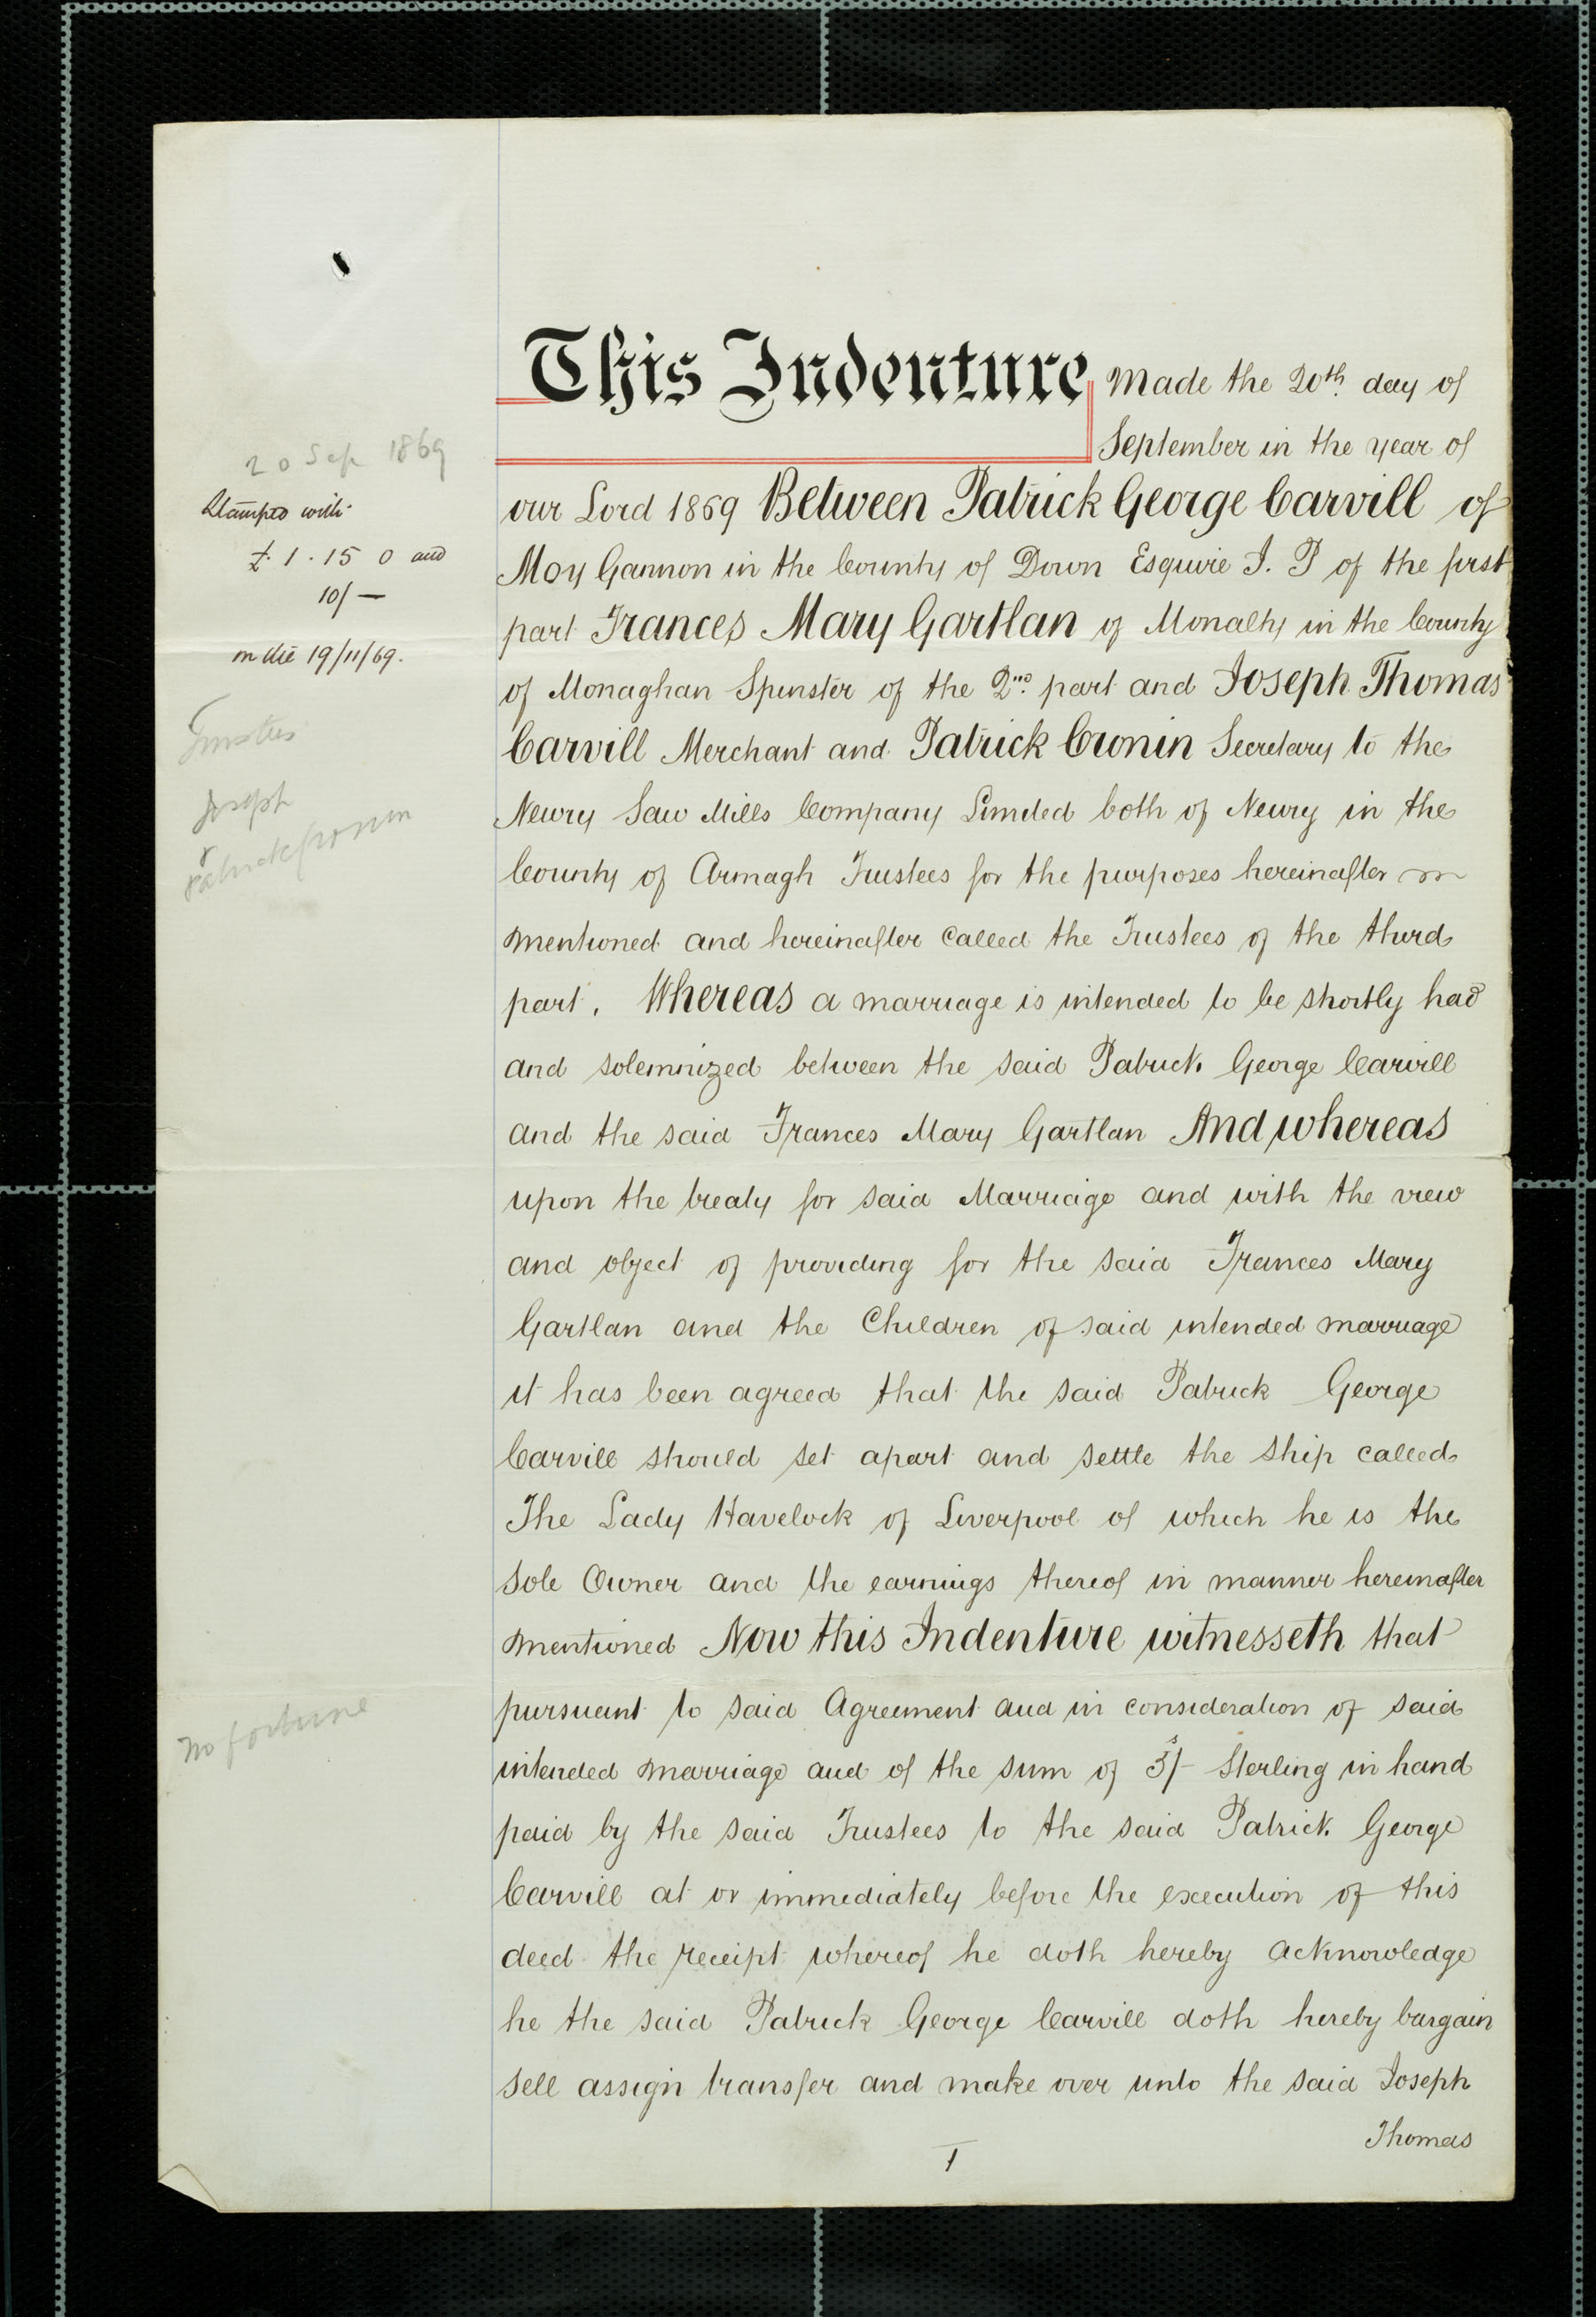 This Indenture Made the 20th day of
September in the year of
our Lord 1869 Between Patrick George Carvill of
Moy Gannon in the County of Down Esquire J. P of the first
part Frances Mary Gartlan of Monalty in the County
of Monaghan Spinster of the 2nd part and Joseph Thomas
Carvill Merchant and Patrick Cronin Secretary to the
Newry Saw Mills Company Limited both of Newry in the
County of Armagh Trustees for the purposes hereinafter
mentioned and hereinafter called the Trustees of the third
part. Whereas a marriage is intended to be shortly had
and solemnized between the said Patrick George Carvill
and the said Frances Mary Gartlan And whereas
upon the treaty for said Marriage and with the view
and object of providing for the said Frances Mary
Gartlan and the Children of said intended marriage
it has been agreed that the said Patrick George
Carvill should set apart and settle the ship called
The Lady Havelock of Liverpool of which he is the
sole Owner and the earnings thereof in manner hereinafter
mentioned Now this Indenture witnesseth that
pursuant to said Agreement and in consideration of said
intended marriage and of the sum of 5/- Sterling in hand
paid by the said Trustees to the said Patrick George
Carvill at or immediately before the execution of this
deed the receipt whereof he doth hereby acknowledge
he the said Patrick George Carvill doth hereby bargain
sell assign transfer and make over unto the said Joseph
Thomas
1
20 Sep 1869
Stamped with
£1.15 0 and
10/—
on die 19/11/69.
Trustees
Joseph
&
Patrick Cronin
no fortune